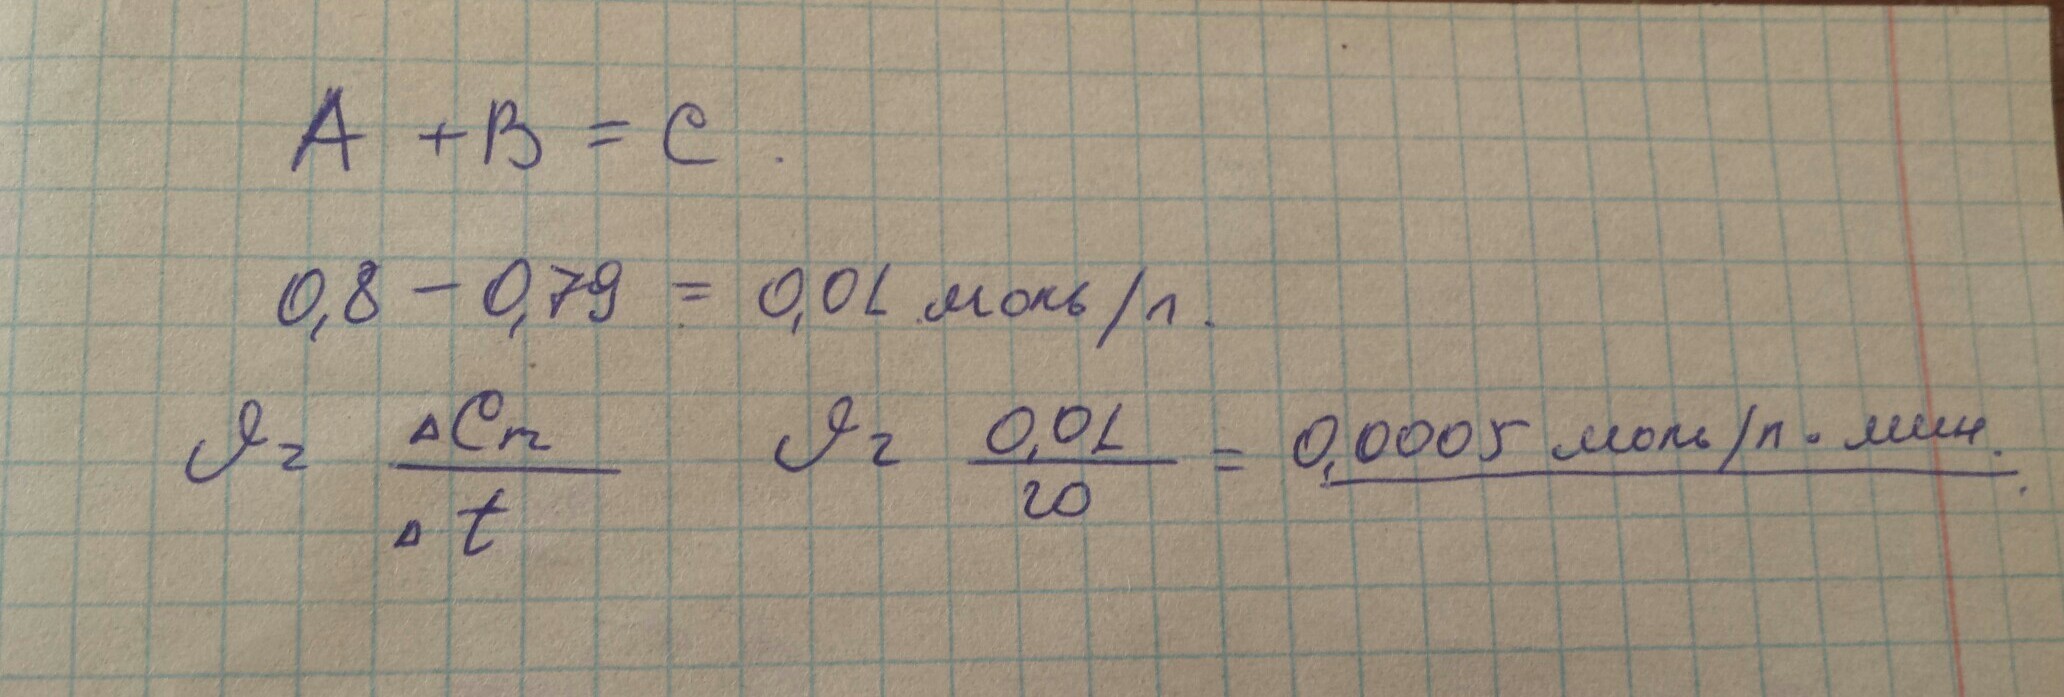 A + B = C.
0,8 - 0,79 = 0,01 моль/л.
𝜗 = ΔCm / Δt 𝜗 = 0,01 / 20 = 0,0005 моль/л·мин.